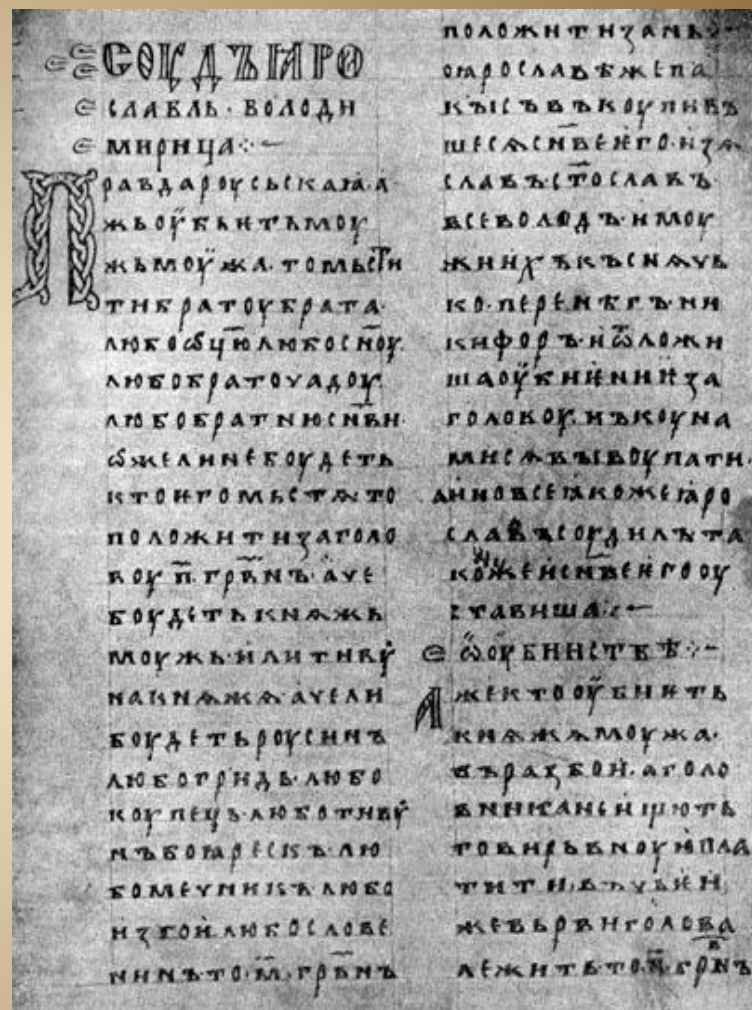 СОУДЪ ꙖРО
СЛАВЛЬ · ВОЛОДИ
МИРИЦА ⁘–
Правдароусьскаꙗ · а
жьоубьѥтьмоу
жьмоужа · томьстⷮи
тибратоубрата ·
любоѡц҃ю любосн҃оу ·
любобратоучадоу ·
любобратнюсн҃ви ·
ѡжелинебоудеть
ктоѥгомьстѧ то
положитизаголо
воу · п҃ · грвн҃ъ · аче
боудетькнѧжь
моужь · илитиву
накнѧжѧ · ачели
боудетьроусинъ
любогридь · любо
коупець · люботиву
нъбоꙗрескъ · лю
бомечникъ любо
изгои · любослове
нинъ то · м҃ · грвн҃ъ
положитизанъ
ꙗрославѣжепа
кысъвъкоупивъ
шесѧсн҃веѥго · изѧ
славъ · ст҃ославъ ·
всеволодъ · имоу
жиихъкъснѧчь
ко · перенѣгъ · ни
кифоръ · иѿложи
шаоубиѥниѥза
головоу · нъкоуна
мисѧвыкоупати ·
аиновсеꙗкожеꙗро
славъсоудилъ та
коже исн҃веѥгооу
ставиша ⁘–
ѡоубииствѣ ⁘–
Ажектооубиѥть
кнѧжѧмоужа ·
въразбои · аголо
вниканеищють
товирьвноуюпла
тити · въчьѥи
жевьрвиголова
лежитьто · п҃ · грвн҃ъ